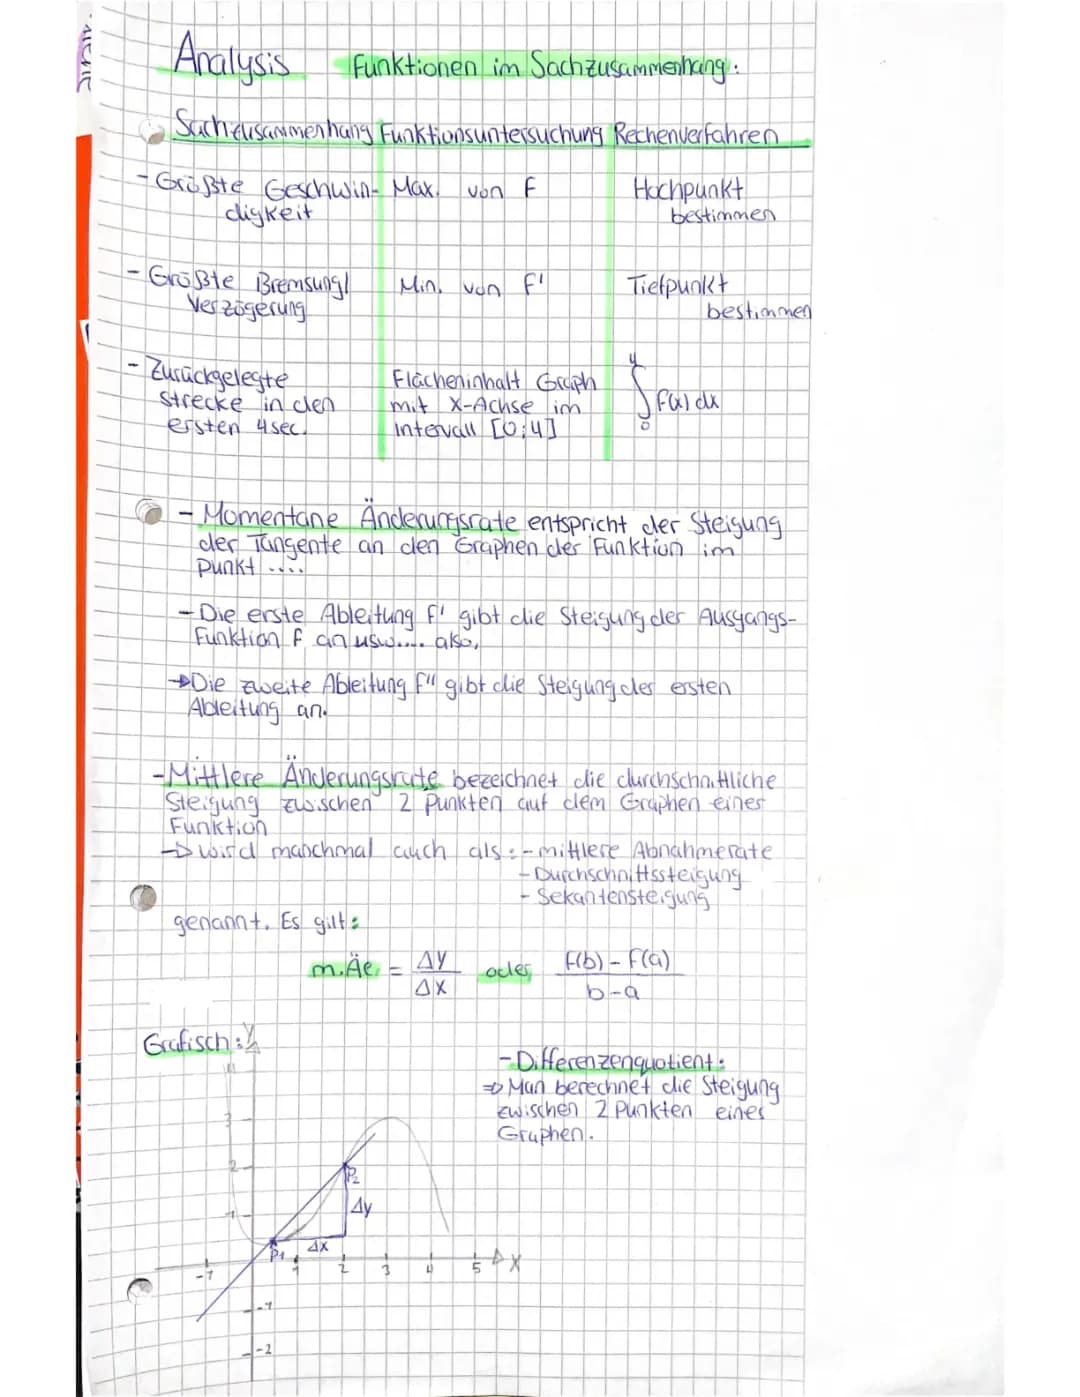 Analysis Funktionen im Sachzusammenhang:
Sachzusammenhang Funktionsuntersuchung Rechenverfahren
- Größte Geschwin- Max. von f Hochpunkt
digkeit bestimmen
- Größte Bremsung/ Min. von f' Tiefpunkt
Verzögerung bestimmen
- Zurückgelegte Flächeninhalt Graph 4
strecke in den mit X-Achse im ∫ f(x) dx
ersten 4 sec. Intervall [0;4] 0
- Momentane Änderungsrate entspricht der Steigung
der Tangente an den Graphen der Funktion im
Punkt ....
- Die erste Ableitung f' gibt die Steigung der Ausgangs-
funktion f an usw.... also,
→ Die zweite Ableitung f'' gibt die Steigung der ersten
Ableitung an.
- Mittlere Änderungsrate bezeichnet die durchschnittliche
Steigung zwischen 2 Punkten auf dem Graphen einer
Funktion
→ wird manchmal auch als: - mittlere Abnahmerate
- Durchschnittssteigung
- Sekantensteigung
genannt. Es gilt:
m.Äe. = Δy/Δx oder f(b) - f(a)/b-a
Grafisch: y
- Differenzenquotient:
⇒ Man berechnet die Steigung
zwischen 2 Punkten eines
Graphen.
4
3
2
P2
1
Δy
P1 Δx
-1 1 2 3 4 5 X
-1
-2